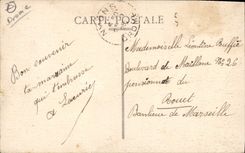 Drome
CARTE POSTALE
NYONS
DROME
Bon souvenir
ta marraine
qui t'embrasse
Mademoiselle Léontine
Boulevard de Maillane N° 26
pensionnat du
Rouet
Banlieue de Marseille